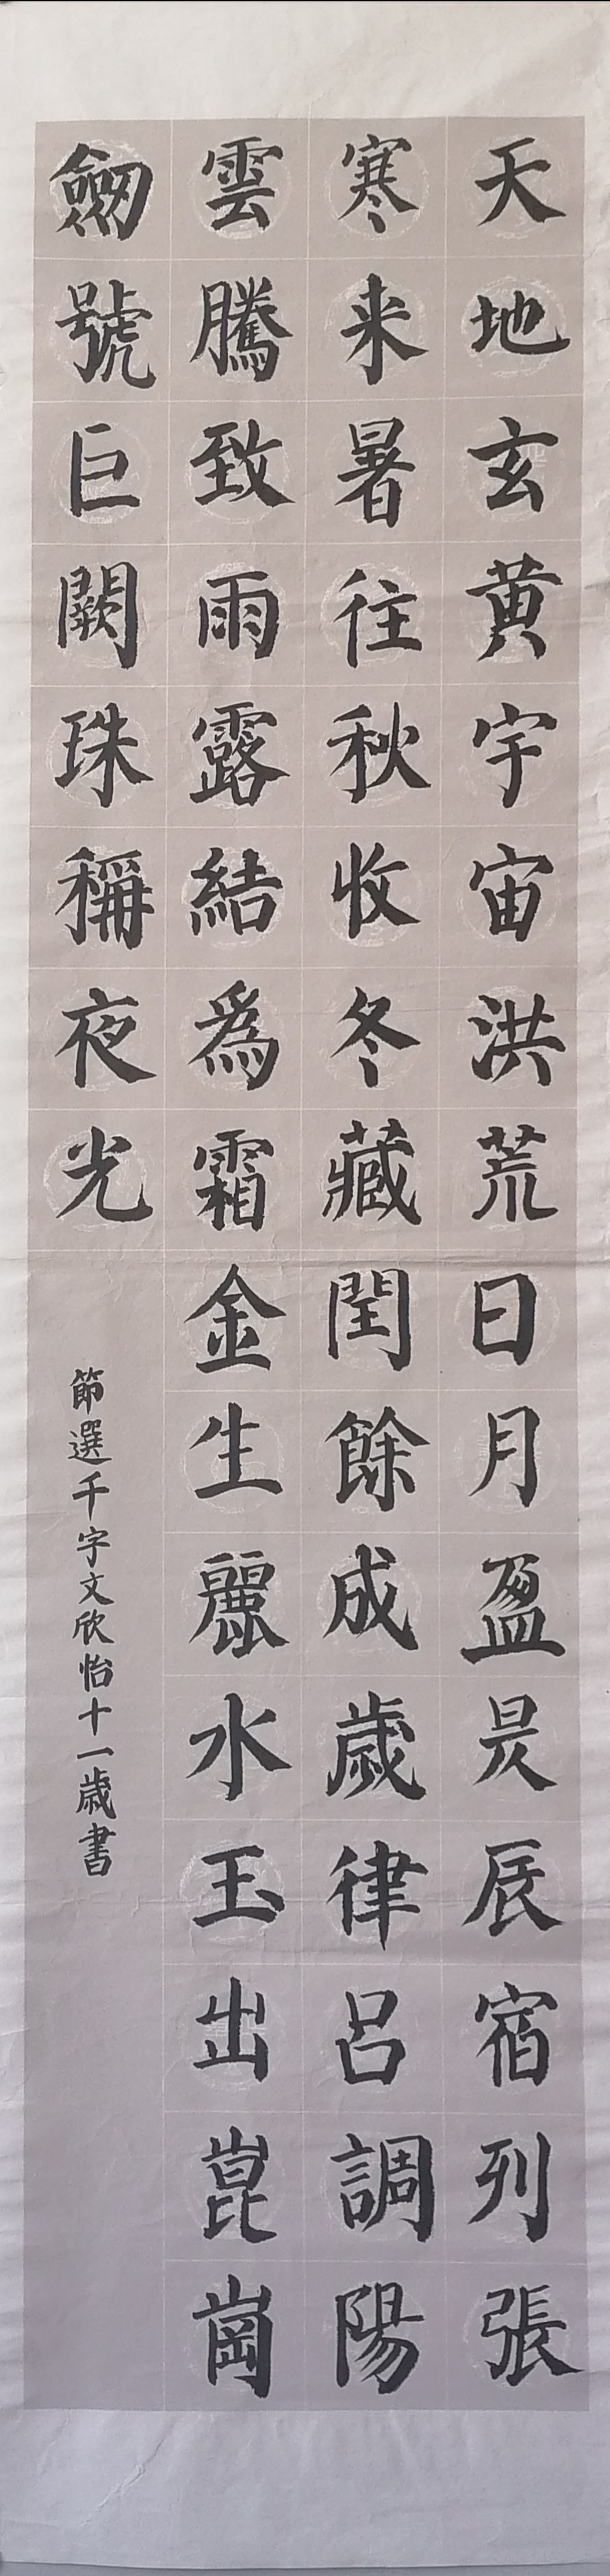 天地玄黄宇宙洪荒日月盈昃辰宿列張
寒来暑往秋收冬藏閏餘成歲律呂調陽
雲騰致雨露結為霜金生麗水玉出崑崗
劒號巨闕珠稱夜光
節選千字文欣怡十一歲書